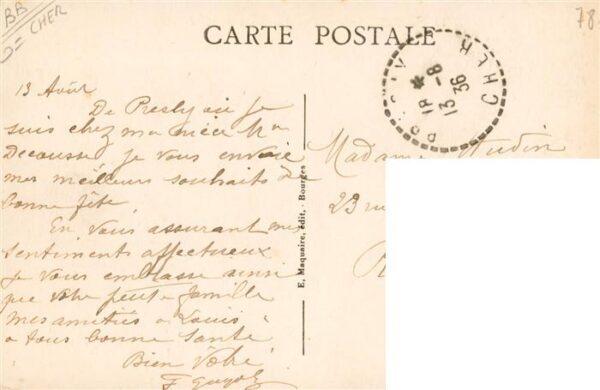 BB
CHER
78
CARTE POSTALE
CHER
18 - 8
13
36
13 Août
De Presly où je
suis chez ma nièce Me
Decoussey je vous envoie
mes meilleurs souhaits de
bonne fête
En vous assurant mes
sentiments affectueux
je vous embrasse ainsi
que votre petite famille
mes amitiés a Louis
a tous bonne santé
Bien Vôtre
E. Maquaire, édit. - Bourges
Madame
23 ru